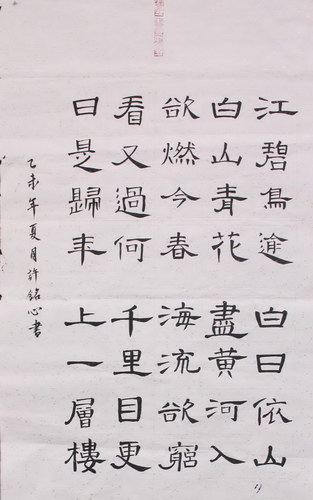 江碧鳥逾
白山青花
欲燃今春
看又過何
日是歸年
白日依山
盡黃河入
海流欲窮
千里目更
上一層樓
乙未年夏月許銘心書